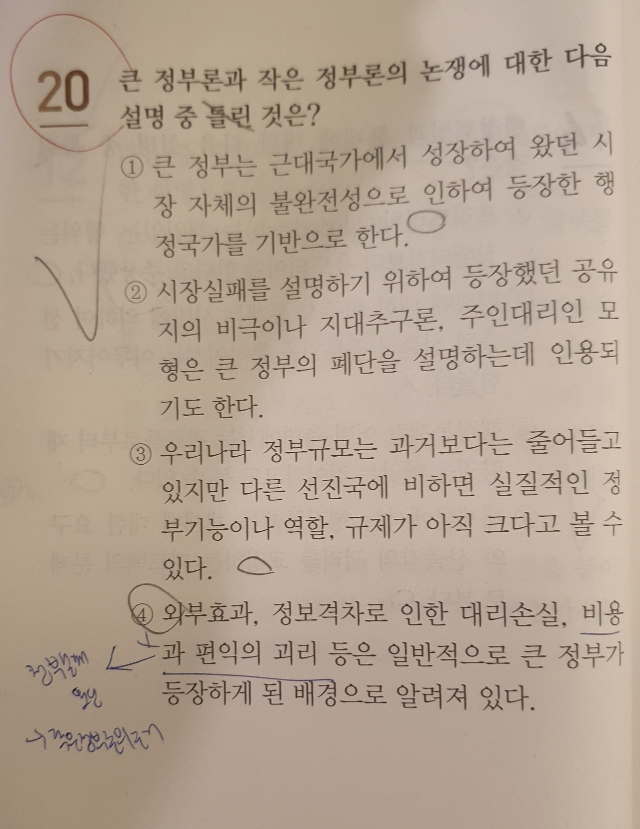 20
큰 정부론과 작은 정부론의 논쟁에 대한 다음
설명 중 틀린 것은?
① 큰 정부는 근대국가에서 성장하여 왔던 시
장 자체의 불완전성으로 인하여 등장한 행
정국가를 기반으로 한다.
② 시장실패를 설명하기 위하여 등장했던 공유
지의 비극이나 지대추구론, 주인대리인 모
형은 큰 정부의 폐단을 설명하는데 인용되
기도 한다.
③ 우리나라 정부규모는 과거보다는 줄어들고
있지만 다른 선진국에 비하면 실질적인 정
부기능이나 역할, 규제가 아직 크다고 볼 수
있다.
④ 외부효과, 정보격차로 인한 대리손실, 비용
과 편익의 괴리 등은 일반적으로 큰 정부가
등장하게 된 배경으로 알려져 있다.